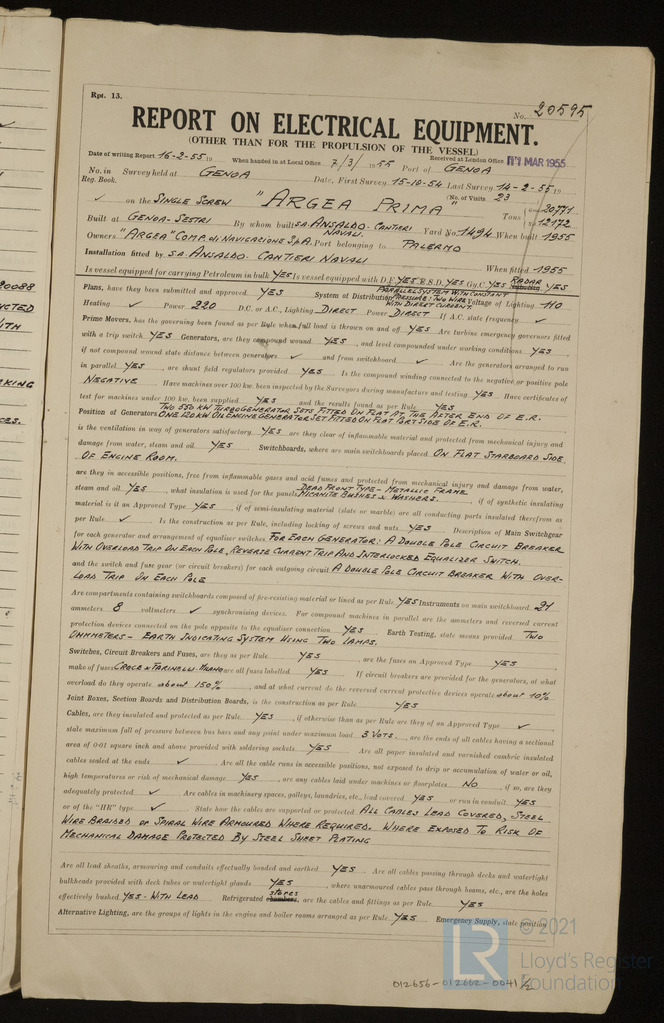 Rpt. 13.
No. 20595
REPORT ON ELECTRICAL EQUIPMENT.
(OTHER THAN FOR THE PROPULSION OF THE VESSEL)
Date of writing Report 16-2-55 19 When handed in at Local Office 7/3/1955 Port of GENOA Received at London Office 11 MAR 1955
No. in Reg. Book. Survey held at GENOA Date, First Survey 15-10-54 Last Survey 14-2-55 19
(No. of Visits 23
✓ on the SINGLE SCREW "ARGEA PRIMA" Tons { Gross 20771
Net 12172
Built at GENOA-SESTRI By whom built S.A. ANSALDO-CANTIERI NAVALI Yard No. 1494 When built 1955
Owners "ARGEA" COMP. di NAVIGAZIONE S.p.A. Port belonging to PALERMO
Installation fitted by S.A. ANSALDO-CANTIERI NAVALI When fitted 1955
Is vessel equipped for carrying Petroleum in bulk YES Is vessel equipped with D.F. YES E.S.D. YES Gy.C. YES RADAR YES
Plans, have they been submitted and approved YES System of Distribution PARALLEL SYSTEM WITH CONSTANT PRESSURE: TWO WIRE WITH DIRECT CURRENT. Voltage of Lighting 110
Heating ✓ Power 220 D.C. or A.C., Lighting DIRECT Power DIRECT If A.C. state frequency ✓
Prime Movers, has the governing been found as per Rule when full load is thrown on and off YES Are turbine emergency governors fitted
with a trip switch YES Generators, are they compound wound YES, and level compounded under working conditions YES,
if not compound wound state distance between generators ✓ and from switchboard ✓ Are the generators arranged to run
in parallel YES, are shunt field regulators provided YES Is the compound winding connected to the negative or positive pole
NEGATIVE Have machines over 100 kw. been inspected by the Surveyors during manufacture and testing YES Have certificates of
test for machines under 100 kw. been supplied YES and the results found as per Rule YES
Position of Generators TWO 550 KW TURBOGENERATOR SETS FITTED ON FLAT AT THE AFTER END OF E.R.
ONE 120 KW OIL ENGINE GENERATOR SET FITTED ON FLAT PORT SIDE OF E.R.
is the ventilation in way of generators satisfactory YES are they clear of inflammable material and protected from mechanical injury and
damage from water, steam and oil YES Switchboards, where are main switchboards placed ON FLAT STARBOARD SIDE
OF ENGINE ROOM.
are they in accessible positions, free from inflammable gases and acid fumes and protected from mechanical injury and damage from water,
steam and oil YES, what insulation is used for the panels DEAD FRONT TYPE - METALLIC FRAME MICANITE BUSHES & WASHERS., if of synthetic insulating
material is it an Approved Type YES, if of semi-insulating material (slate or marble) are all conducting parts insulated therefrom as
per Rule ✓ Is the construction as per Rule, including locking of screws and nuts YES Description of Main Switchgear
for each generator and arrangement of equaliser switches FOR EACH GENERATOR: A DOUBLE POLE CIRCUIT BREAKER
WITH OVERLOAD TRIP ON EACH POLE, REVERSE CURRENT TRIP AND INTERLOCKED EQUALIZER SWITCH.
and the switch and fuse gear (or circuit breakers) for each outgoing circuit A DOUBLE POLE CIRCUIT BREAKER WITH OVER-
LOAD TRIP ON EACH POLE
Are compartments containing switchboards composed of fire-resisting material or lined as per Rule YES Instruments on main switchboard 21
ammeters 8 voltmeters ✓ synchronising devices. For compound machines in parallel are the ammeters and reversed current
protection devices connected on the pole opposite to the equaliser connection YES Earth Testing, state means provided TWO
OHMMETERS - EARTH INDICATING SYSTEM USING TWO LAMPS.
Switches, Circuit Breakers and Fuses, are they as per Rule YES, are the fuses an Approved Type YES,
make of fuses are all fuses labelled YES If circuit breakers are provided for the generators, at what
overload do they operate about 150%, and at what current do the reversed current protective devices operate about 10%
Joint Boxes, Section Boards and Distribution Boards, is the construction as per Rule YES
Cables, are they insulated and protected as per Rule YES, if otherwise than as per Rule are they of an Approved Type ✓,
state maximum fall of pressure between bus bars and any point under maximum load 3 VOTS., are the ends of all cables having a sectional
area of 0·01 square inch and above provided with soldering sockets YES Are all paper insulated and varnished cambric insulated
cables sealed at the ends ✓ Are all the cable runs in accessible positions, not exposed to drip or accumulation of water or oil,
high temperatures or risk of mechanical damage YES, are any cables laid under machines or floorplates NO, if so, are they
adequately protected ✓ Are cables in machinery spaces, galleys, laundries, etc., lead covered YES or run in conduit YES
or of the "HR" type ✓ State how the cables are supported or protected ALL CABLES LEAD COVERED, STEEL
WIRE BRAIDED OR SPIRAL WIRE ARMOURED WHERE REQUIRED. WHERE EXPOSED TO RISK OF
MECHANICAL DAMAGE PROTECTED BY STEEL SHEET PLATING
Are all lead sheaths, armouring and conduits effectually bonded and earthed YES Are all cables passing through decks and watertight
bulkheads provided with deck tubes or watertight glands YES, where unarmoured cables pass through beams, etc., are the holes
effectively bushed YES - WITH LEAD Refrigerated chambers stores, are the cables and fittings as per Rule YES
Alternative Lighting, are the groups of lights in the engine and boiler rooms arranged as per Rule YES Emergency Supply, state position
012656-012662-0041 1/2
LR
© 2021
Lloyd's Register
Foundation
20088
WITH